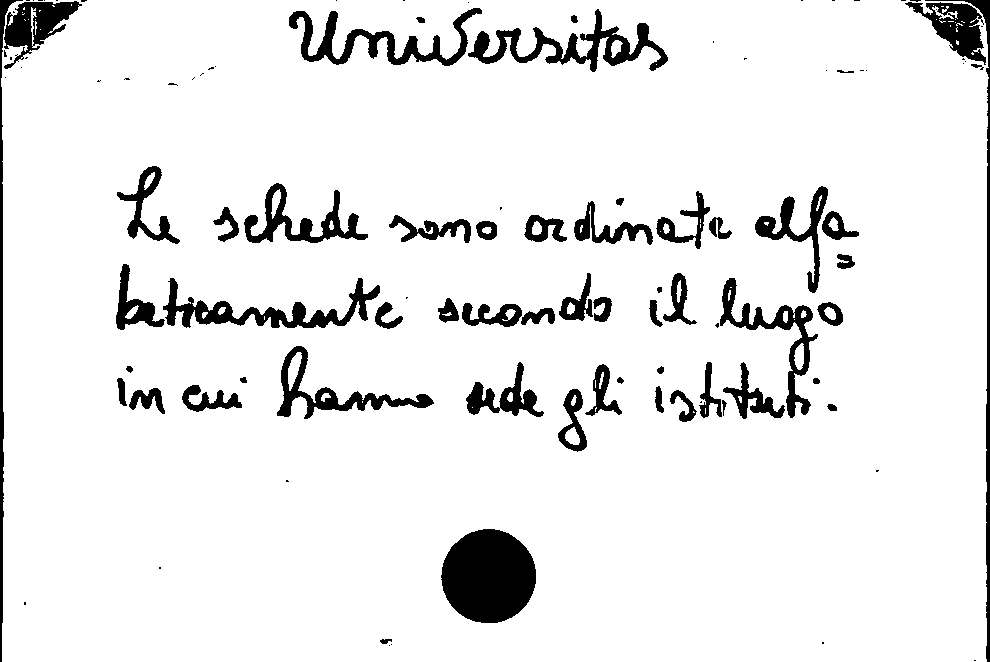 Universitas
Le schede sono ordinate alfa=
beticamente secondo il luogo
in cui hanno sede gli istituti.